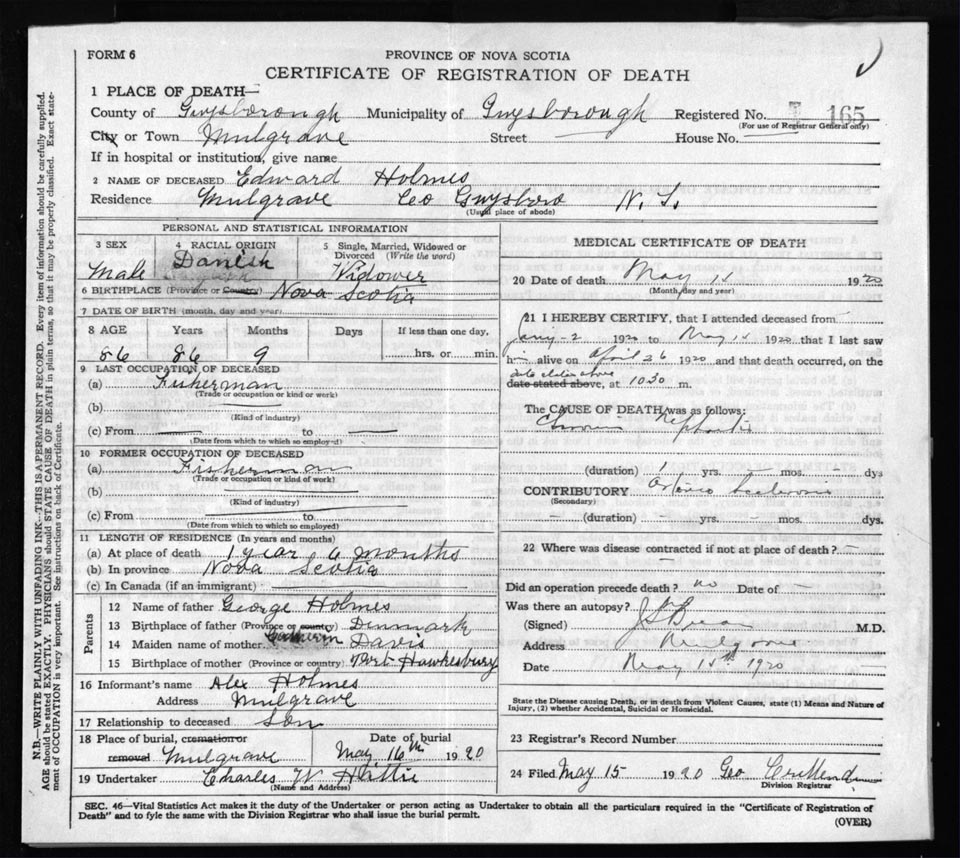 FORM 6
PROVINCE OF NOVA SCOTIA
CERTIFICATE OF REGISTRATION OF DEATH
1 PLACE OF DEATH—
County of Guysborough Municipality of Guysborough Registered No. 165
(For use of Registrar General only)
City or Town Mulgrave Street House No.
If in hospital or institution, give name
2 NAME OF DECEASED Edward Holmes
Residence Mulgrave Co Guysboro N. S.
(Usual place of abode)
PERSONAL AND STATISTICAL INFORMATION
3 SEX Male
4 RACIAL ORIGIN Danish
5 Single, Married, Widowed or Divorced (Write the word) Widower
6 BIRTHPLACE (Province or Country) Nova Scotia
7 DATE OF BIRTH (month, day and year)
8 AGE Years Months Days If less than one day,
86 86 9 hrs. or min.
9 LAST OCCUPATION OF DECEASED
(a) Fisherman
(Trade or occupation or kind or work)
(b)
(Kind of industry)
(c) From — to —
(Date from which to which so employed)
10 FORMER OCCUPATION OF DECEASED
(a) Fisherman
(Trade or occupation or kind of work)
(b)
(Kind of industry)
(c) From to
(Date from which to which so employed)
11 LENGTH OF RESIDENCE (In years and months)
(a) At place of death 1 year 6 months
(b) In province Nova Scotia
(c) In Canada (if an immigrant)
Parents
12 Name of father George Holmes
13 Birthplace of father (Province or country) Dinmark
14 Maiden name of mother Davis
15 Birthplace of mother (Province or country) Port Hawkesbury
16 Informant's name Alex Holmes
Address Mulgrave
17 Relationship to deceased Son
18 Place of burial, cremation or removal Mulgrave Date of burial May 16th 1920
19 Undertaker Charles W Hattie
(Name and Address)
MEDICAL CERTIFICATE OF DEATH
20 Date of death May 15 1920
(Month, day and year)
21 I HEREBY CERTIFY, that I attended deceased from
1920 to May 15 1920 that I last saw
him alive on April 26 1920 and that death occurred, on the
date stated above
date stated above, at 1030 m.
The CAUSE OF DEATH was as follows:
Chronic Nephritis
(duration) yrs. — mos. — dys
CONTRIBUTORY Arterio Sclerosis
(Secondary)
— (duration) — yrs. — mos. — dys.
22 Where was disease contracted if not at place of death? —
Did an operation precede death? no Date of —
Was there an autopsy?
(Signed) M.D.
Address Mulgrave
Date May 15th 1920
State the Disease causing Death, or in death from Violent Causes, state (1) Means and Nature of
Injury, (2) whether Accidental, Suicidal or Homicidal.
23 Registrar's Record Number
24 Filed May 15 1920 Geo
Division Registrar
SEC. 46—Vital Statistics Act makes it the duty of the Undertaker or person acting as Undertaker to obtain all the particulars required in the "Certificate of Registration of
Death" and to fyle the same with the Division Registrar who shall issue the burial permit.
(OVER)
N.B.—WRITE PLAINLY WITH UNFADING INK—THIS IS A PERMANENT RECORD. Every item of information should be carefully supplied.
AGE should be stated EXACTLY. PHYSICIANS should STATE CAUSE OF DEATH in plain terms, so that it may be properly classified. Exact state-
ment of OCCUPATION is very important. See instructions on back of Certificate.